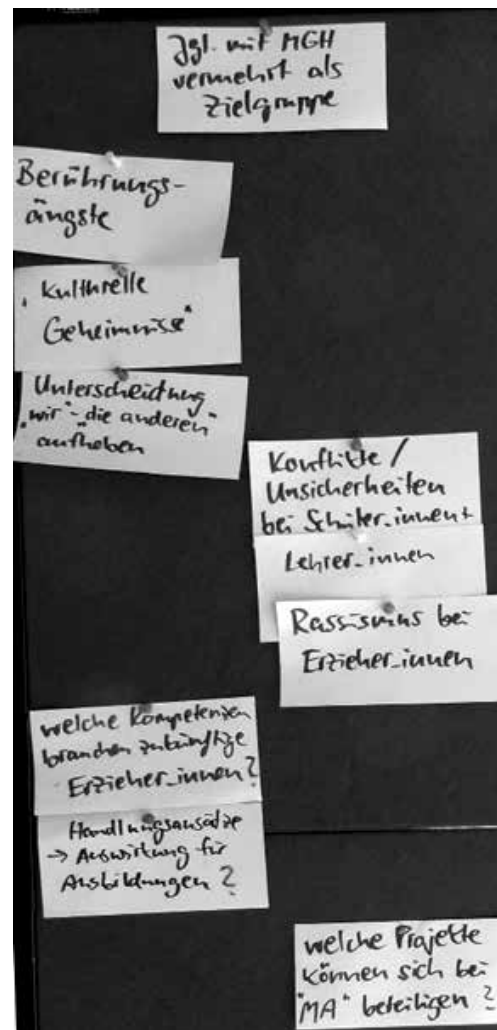 Jgl. mit MGH
vermehrt als
Zielgruppe
Berührungs-
ängste
"kulturelle
Geheimnisse"
Unterscheidung
"wir"-"die anderen"
aufheben
Konflikte /
Unsicherheiten
bei Schüler_innen +
Lehrer_innen
Rassismus bei
Erzieher_innen
welche Kompetenzen
brauchen zukünftige
Erzieher_innen?
Handlungsansätze
→ Auswirkung für
Ausbildungen?
welche Projekte
können sich bei
"MA" beteiligen?